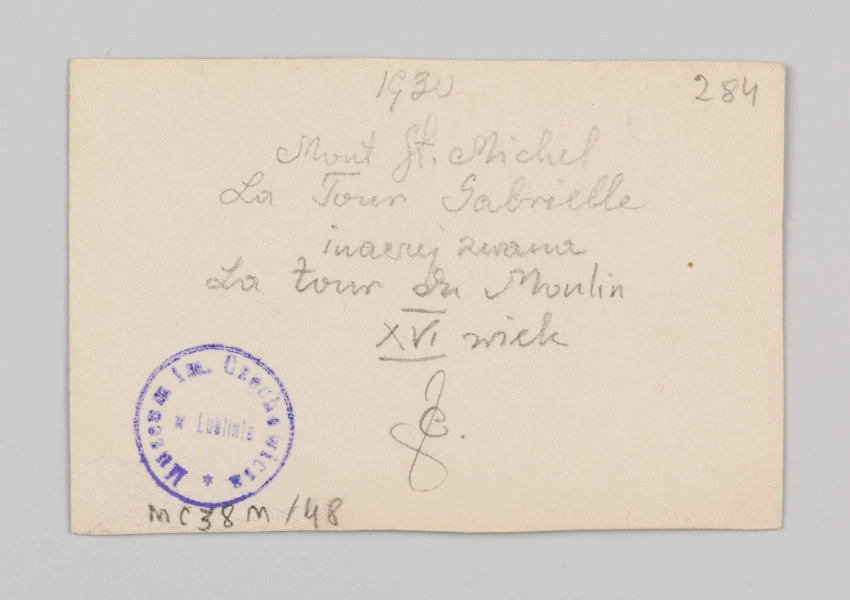 1930
284
Mont St. Michel
La Tour Gabrielle
inaczej zwana
La tour du Moulin
XVI wiek
JC.
Muzeum im. Czechowicza
w Lublinie
MC38M/48